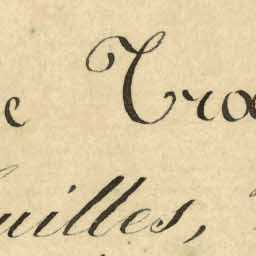 e Troe
uilles,